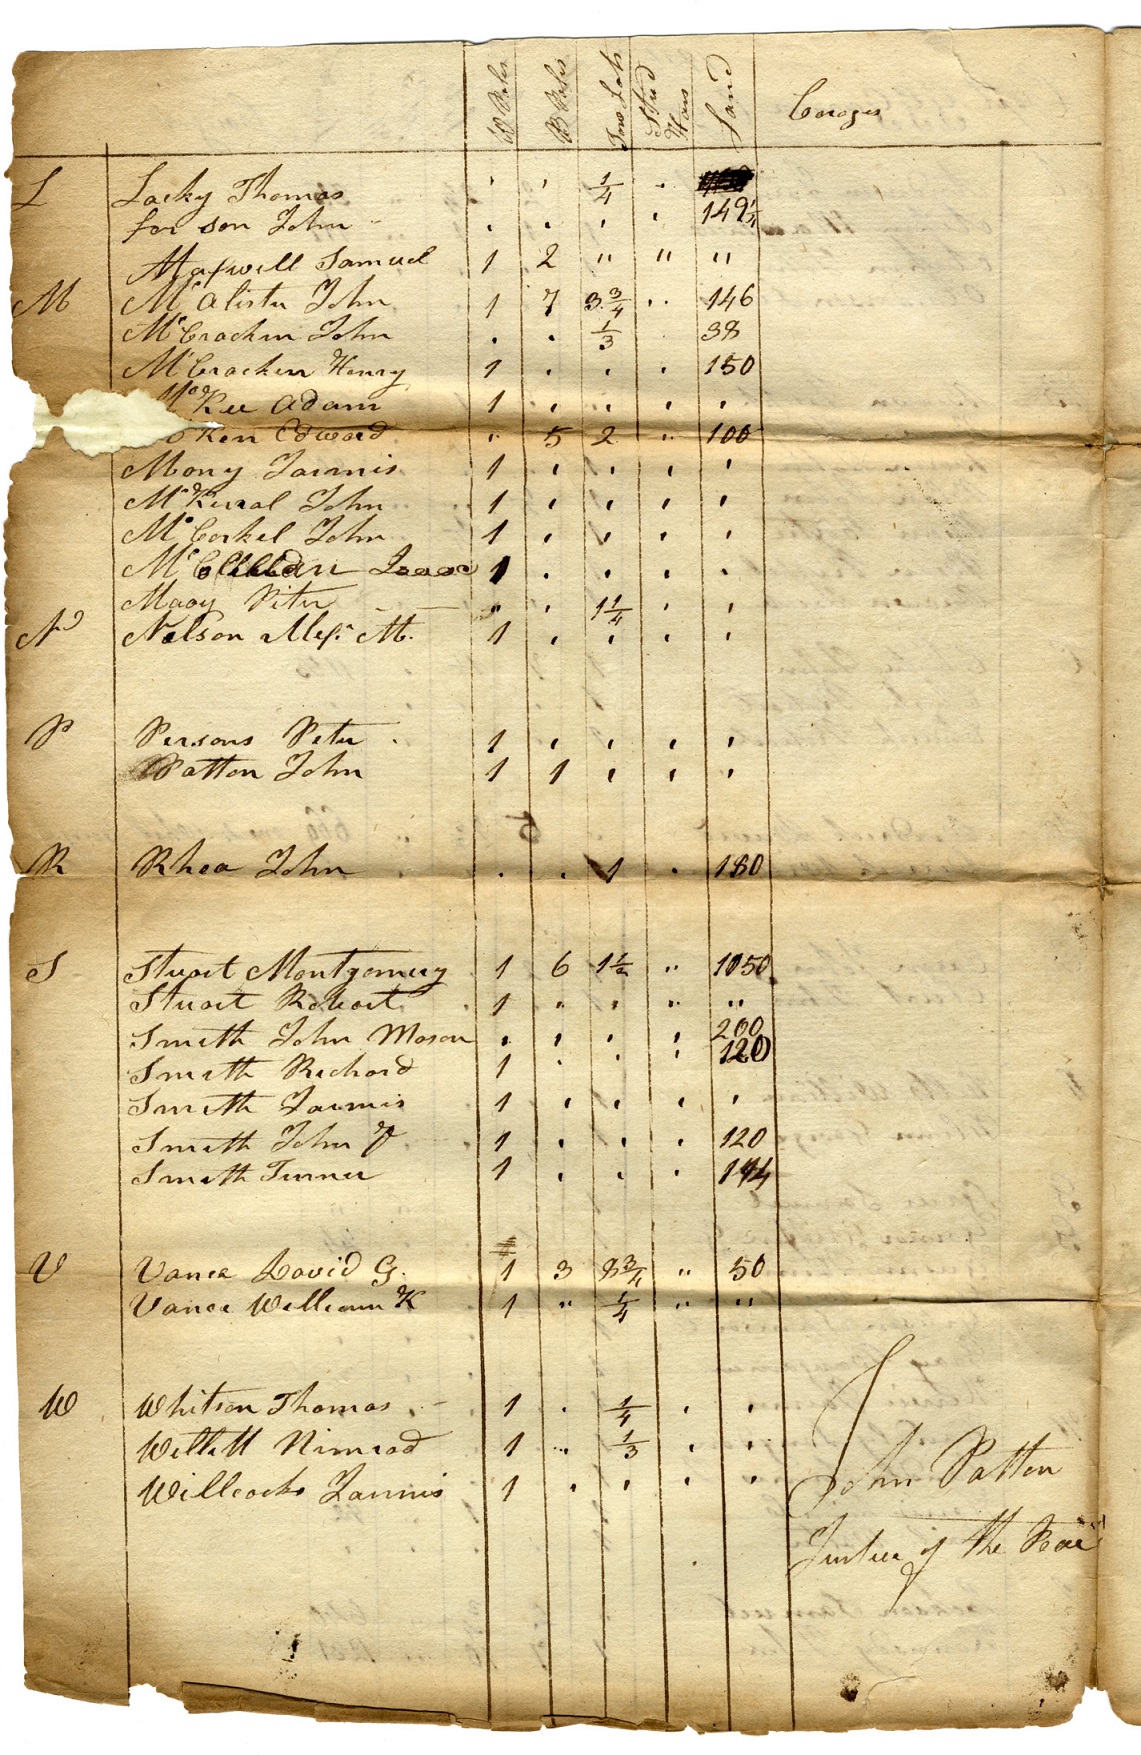 W Poles B Poles Town Lots Stud Hors Land Carages
L Lacky Thomas ' ' 1/4 .
for son John . . ' ' 149 1/4
Maxwell Samuel 1 2 " " "
M McAlister John 1 7 3 3/4 .. 146
McCrackin John . . 1/3 38
McCracken Henry 1 . . . 150
McKee Adam 1 ' ' ' '
Edward " 5 2 " 100
Mony Jammis 1 ' ' ' '
John 1 ' ' ' '
McCorkel John 1 ' ' ' '
Isaac 1 . ' ' '
Peter " ' 1 1/4 ' '
N Nelson M. 1 ' ' ' '
P Persons Peter 1 ' ' ' '
Patton John 1 1 ' ' '
R Rhea John . . 1 . 180
S Stuart Montgomery 1 6 1 1/2 " 1050
Stuart Robart 1 " ' " "
Smith John Mason . ' ' ' 200
Smith Richard 1 . . ' 120
Smith Jammis 1 ' ' ' '
Smith John F 1 . . . 120
Smith Turner 1 . . . 194
V Vance David G. 1 3 8 3/4 " 50
Vance William K 1 " 1/4 " "
W Whitson Thomas 1 . 1/4 ' '
Willett Nimrod 1 .. 1/3 ' '
Willcocks Jammis 1 ' ' ' '
John Patton
Justice of the Peace